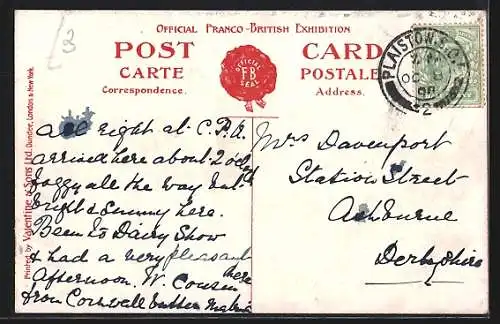 [3
OFFICIAL FRANCO-BRITISH EXHIBITION
POST CARD
CARTE POSTALE
Correspondence. Address.
OFFICIAL
F.B
SEAL
PLAISTOW S.O.
OC 8
08
Printed by Valentine & Sons Ltd. Dundee, London & New York.
All right at C.P.A.
arrived here about 2 oclk
foggy all the way but
bright & Sunny here.
Been to Dairy Show
& had a very pleasant
afternoon. W. Cousin here
from Cornwall
Mrs Davenport
Station Street
Ashbourne
Derbyshire